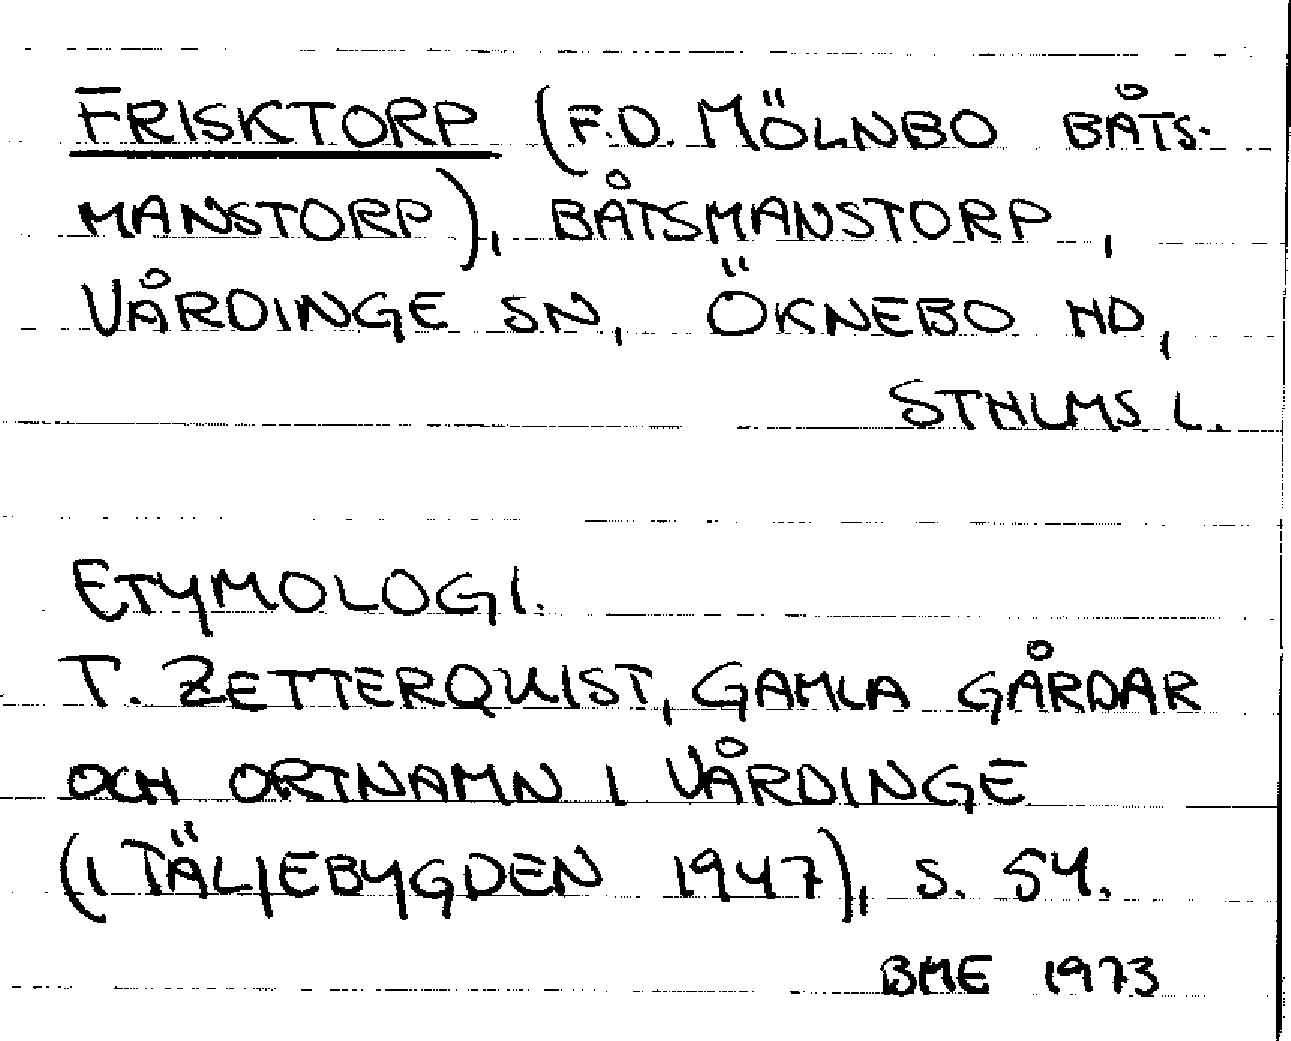 FRISKTORP (F.D. MÖLNBO BÅTS-
MANSTORP), BÅTSMANSTORP,
VÅRDINGE SN, ÖKNEBO HD,
STHLMS L.
ETYMOLOGI.
T. ZETTERQUIST, GAMLA GÅRDAR
OCH ORTNAMN I VÅRDINGE
(I TÄLJEBYGDEN 1947), S. 54.
BME 1973